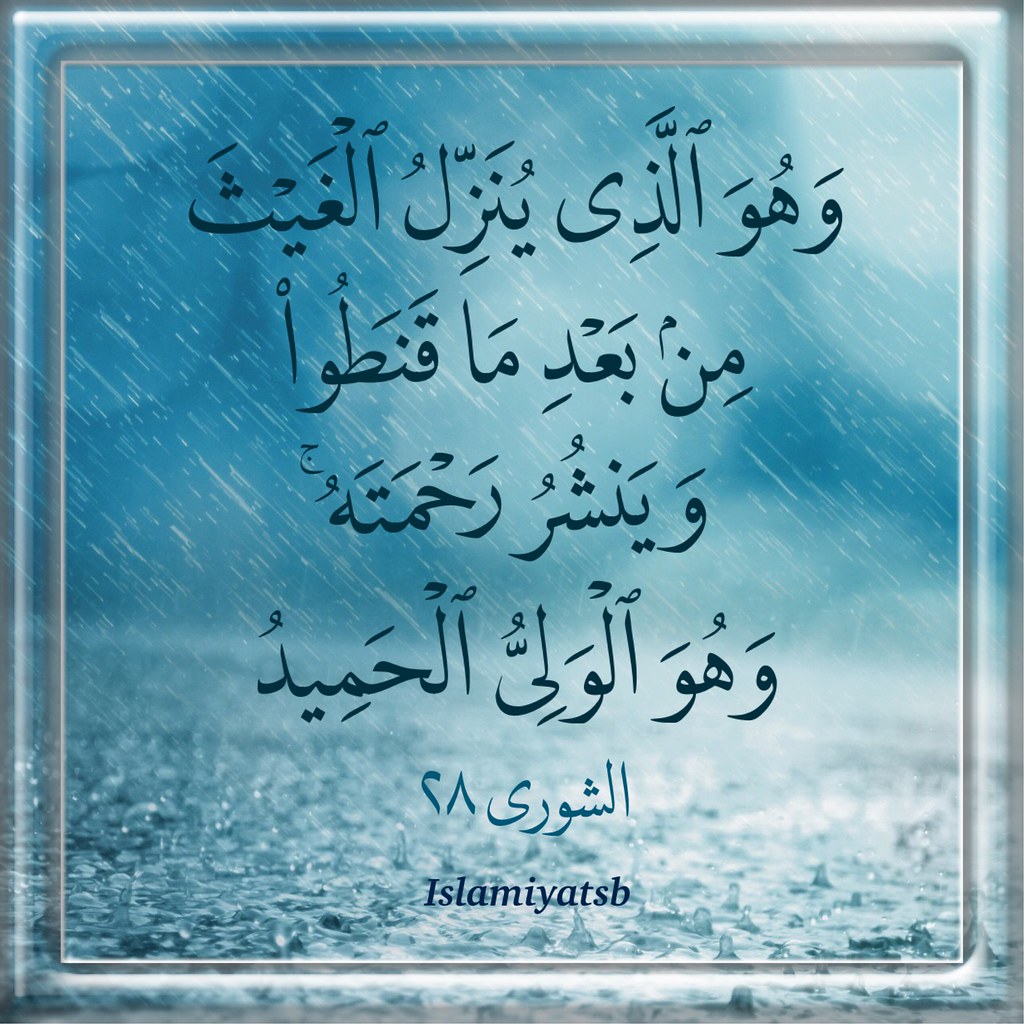 وَهُوَ ٱلَّذِى يُنَزِّلُ ٱلْغَيْثَ
مِنۢ بَعْدِ مَا قَنَطُوا۟
وَيَنشُرُ رَحْمَتَهُۥ ۚ
وَهُوَ ٱلْوَلِىُّ ٱلْحَمِيدُ
الشورى ٢٨
Islamiyatsb